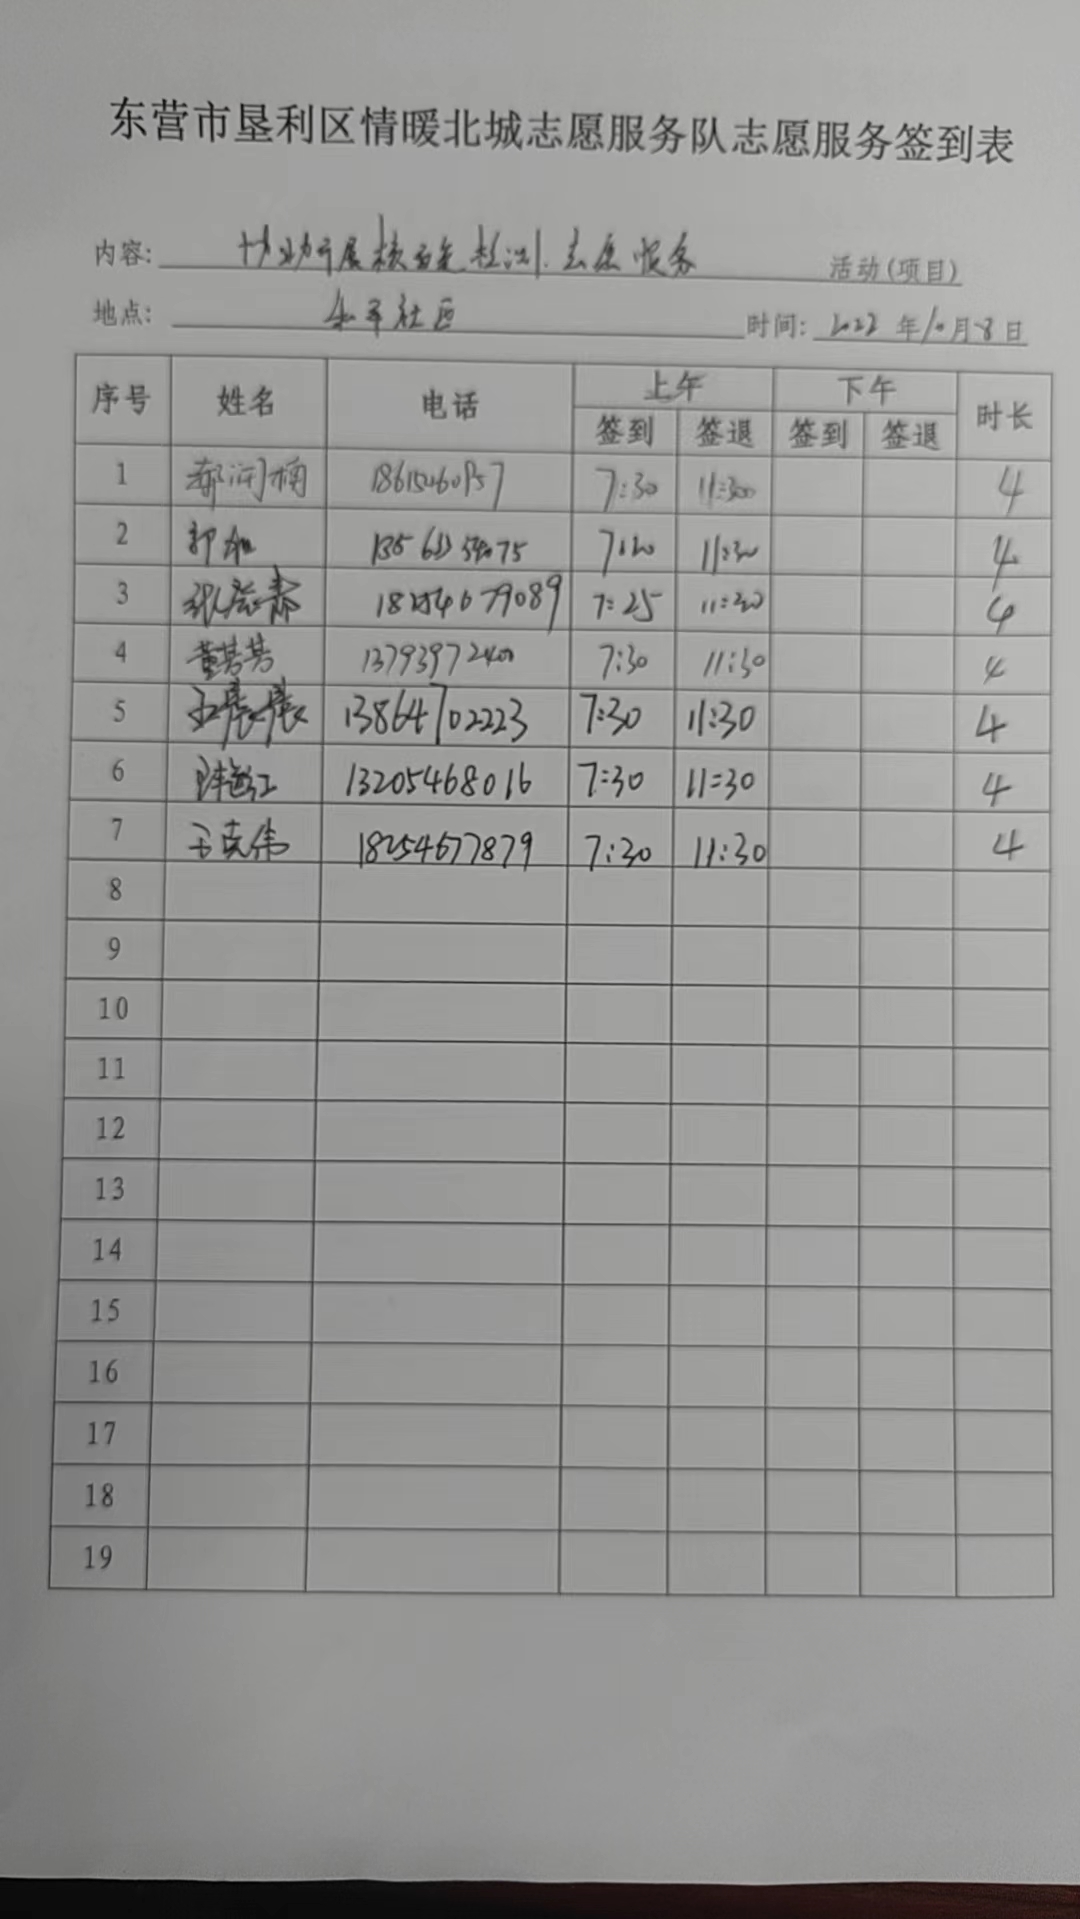 东营市垦利区情暖北城志愿服务队志愿服务签到表
内容: 协助开展核酸检测志愿服务 活动(项目)
地点: 社区 时间: 2022 年 10 月 8 日
序号 姓名 电话 上午 下午 时长
签到 签退 签到 签退
1 7:30 11:30 4
2 郭 11:30 4
3 张 18254679089 7:25 4
4 董芳芳 7:30 11:30 4
5 王晨晨 13864702223 7:30 11:30 4
6 13205468016 7:30 11:30 4
7 王克伟 18254677879 7:30 11:30 4
8
9
10
11
12
13
14
15
16
17
18
19